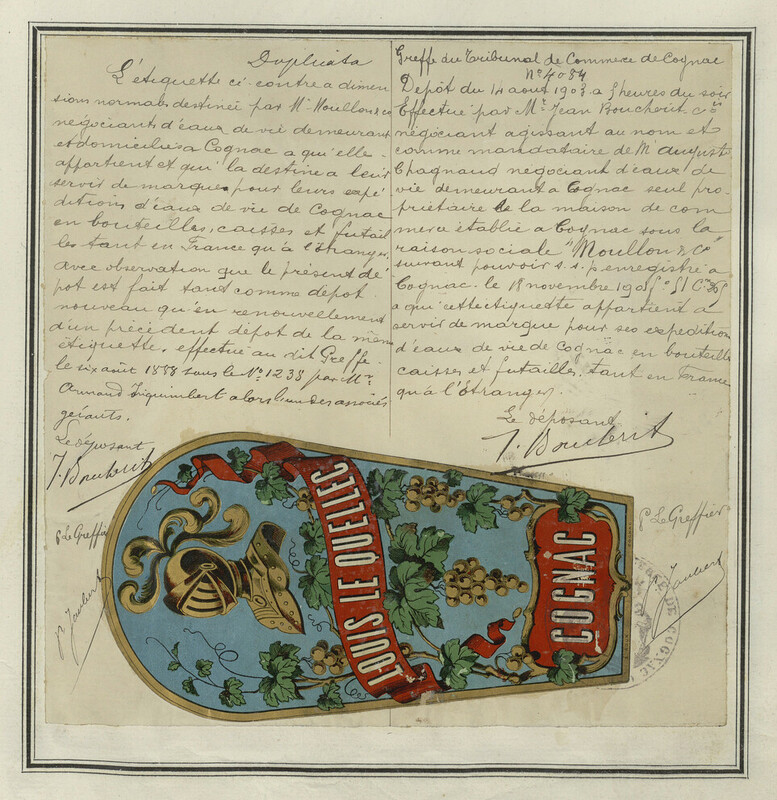 Duplicata
L'étiquette ci-contre a dimen
sions normales destinée par Mr Moullon & Co
négociants d'eaux de vie demeurant
et domiciliés a Cognac a qu'elle
appartient et qui la destine a leur
servir de marque pour leurs expé
ditions d'eaux de vie de Cognac
en bouteilles, caisses et futail
les tant en France qu'à l'étranger.
Avec observation que le présent dé
pot est fait tant comme dépot
nouveau qu'en renouvellement
d'un précédent dépot de la même
étiquette, effectué au dit Greffe
le six août 1888 sous le No 1233 par Mr
Armand Triquimbert alors l'un des associés
gérants.
Le déposant
J. Boucherit
p Le Greffier
Greffe du Tribunal de Commerce de Cognac
No 4084
Dépot du 14 aout 1903 a 5 heures du soir
Effectué par Mr Jean Boucherit
négociant agissant au nom et
comme mandataire de Mr Auguste
Chagnaud négociant d'eaux de
vie demeurant a Cognac seul pro
priétaire de la maison de com
merce établie a Cognac sous la
raison sociale "Moullon & Co"
suivant pouvoir s.s.p. enregistré a
Cognac le 18 novembre
a qui cette étiquette appartient a
servir de marque pour ses expéditions
d'eaux de vie de Cognac en bouteille
caisses et futailles, tant en France
qu'à l'Étranger.
Le déposant
J. Boucherit
p Le Greffier
LOUIS LE QUELLEC
COGNAC
DE COGNAC